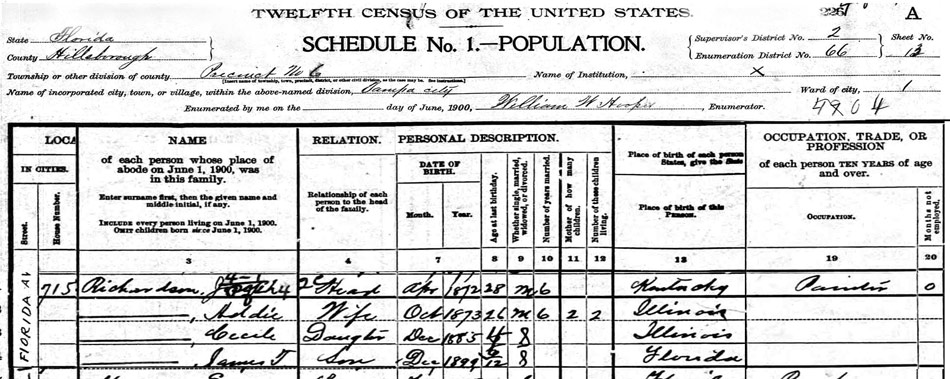 TWELFTH CENSUS OF THE UNITED STATES.
A
State Florida
County Hillsborough
SCHEDULE No. 1.—POPULATION.
Supervisor's District No. 2
Enumeration District No. 66
Sheet No.
Township or other division of county Precinct
[Insert name of township, town, precinct, district, or other civil division, as the case may be. See instructions.]
Name of Institution, X
Name of incorporated city, town, or village, within the above-named division, Tampa city
Ward of city, 1
Enumerated by me on the day of June, 1900, William W Hooper, Enumerator.
4904
LOCA
IN CITIES.
Street.
House Number.
NAME
of each person whose place of
abode on June 1, 1900, was
in this family.
Enter surname first, then the given name and
middle initial, if any.
INCLUDE every person living on June 1, 1900.
OMIT children born since June 1, 1900.
RELATION.
Relationship of each
person to the head
of the family.
PERSONAL DESCRIPTION.
DATE OF
BIRTH.
Month. Year.
Age at last birthday.
Whether single, married,
widowed, or divorced.
Number of years married.
Mother of how many
children.
Number of these children
living.
Place of birth of each person
States, give the State
Place of birth of this
PERSON.
OCCUPATION, TRADE, OR
PROFESSION
of each person TEN YEARS of age
and over.
OCCUPATION.
Months not
employed.
3 4 7 8 9 10 11 12 13 19 20
FLORIDA AV
715 Richardson, Joseph Head Apr 1872 28 M 6 Kentucky Painter 0
Addie Wife Oct 1873 26 M 6 2 2 Illinois
Cecile Daughter Dec 1895 4 S Illinois
James T. Son Dec 1899 6/12 S Florida